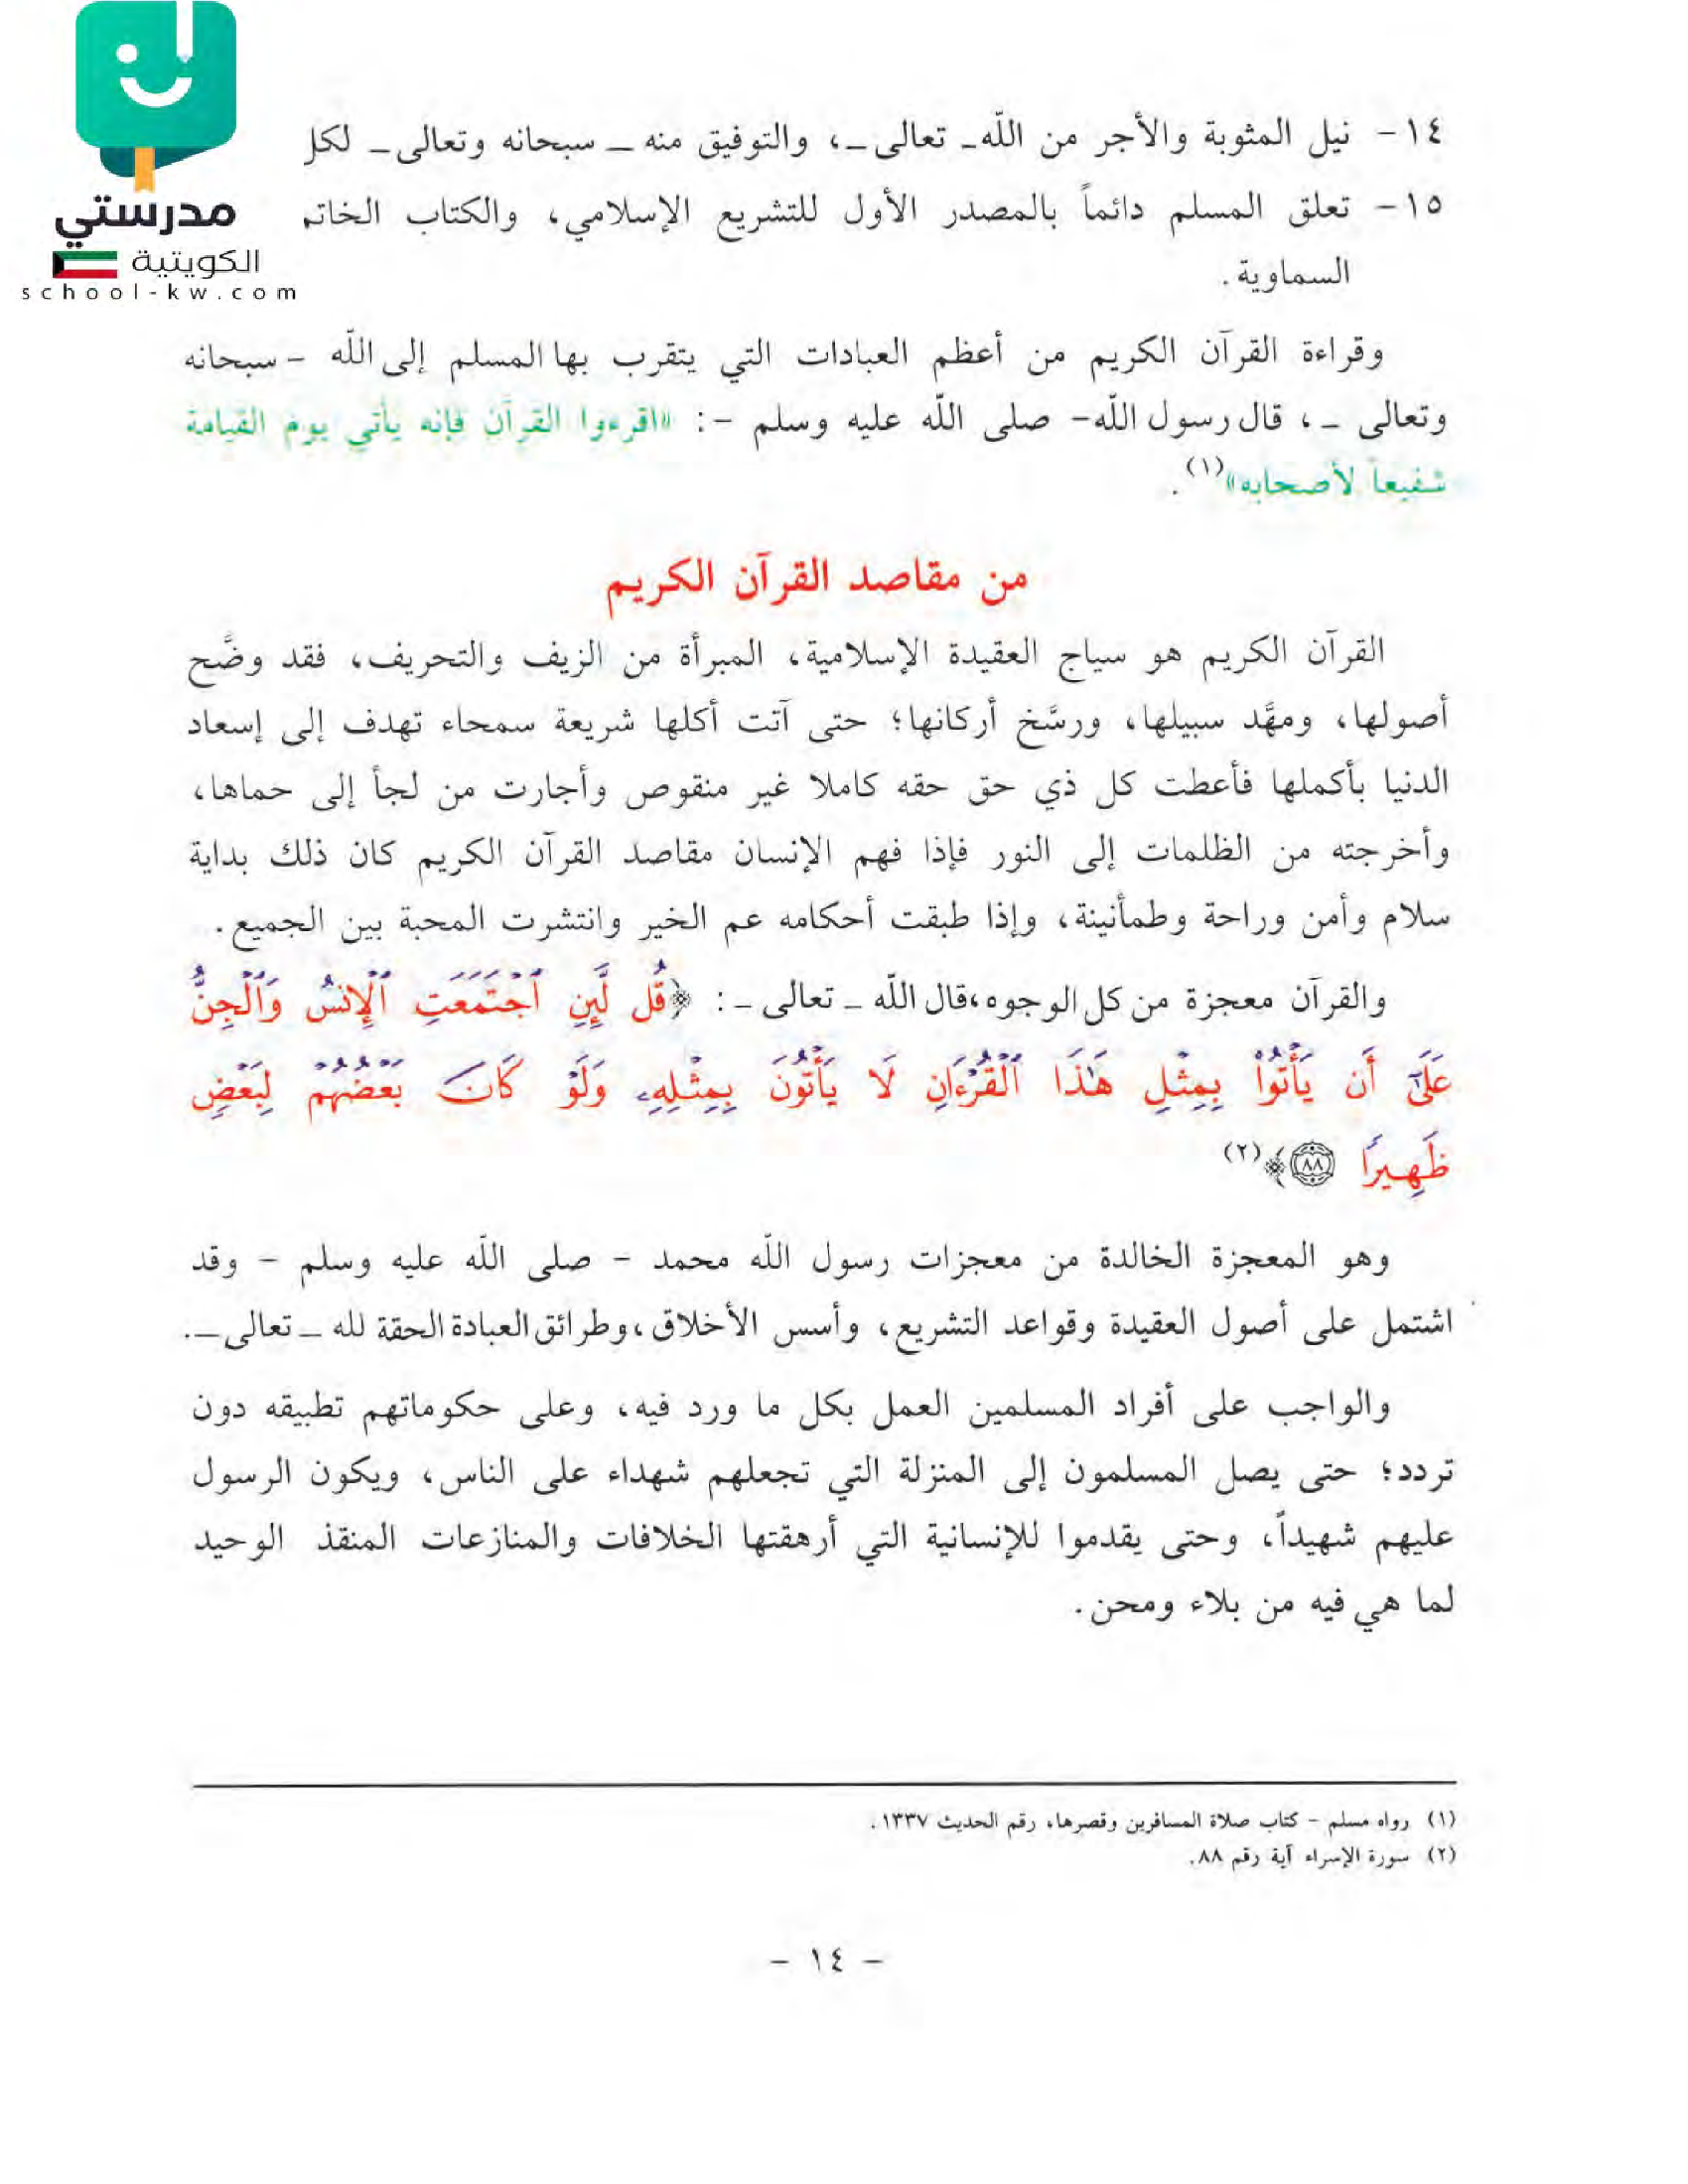 مدرستي
الكويتية
school-kw.com
١٤ - نيل المثوبة والأجر من الله_ تعالى_، والتوفيق منه _ سبحانه وتعالى_ لكل
١٥ - تعلق المسلم دائماً بالمصدر الأول للتشريع الإسلامي، والكتاب الخاتم
السماوية.
وقراءة القرآن الكريم من أعظم العبادات التي يتقرب بها المسلم إلى الله - سبحانه
وتعالى _، قال رسول الله- صلى الله عليه وسلم -: «اقرءوا القرآن فإنه يأتي يوم القيامة
شفيعاً لأصحابه»(١).
من مقاصد القرآن الكريم
القرآن الكريم هو سياج العقيدة الإسلامية، المبرأة من الزيف والتحريف، فقد وضَّح
أصولها، ومهَّد سبيلها، ورسَّخ أركانها؛ حتى آتت أكلها شريعة سمحاء تهدف إلى إسعاد
الدنيا بأكملها فأعطت كل ذي حق حقه كاملا غير منقوص وأجارت من لجأ إلى حماها،
وأخرجته من الظلمات إلى النور فإذا فهم الإنسان مقاصد القرآن الكريم كان ذلك بداية
سلام وأمن وراحة وطمأنينة، وإذا طبقت أحكامه عم الخير وانتشرت المحبة بين الجميع.
والقرآن معجزة من كل الوجوه،قال الله _ تعالى _: ﴿قُل لَّئِنِ ٱجۡتَمَعَتِ ٱلۡإِنسُ وَٱلۡجِنُّ
عَلَىٰٓ أَن يَأۡتُواْ بِمِثۡلِ هَٰذَا ٱلۡقُرۡءَانِ لَا يَأۡتُونَ بِمِثۡلِهِۦ وَلَوۡ كَانَ بَعۡضُهُمۡ لِبَعۡضٖ
ظَهِيرٗا ٨٨﴾(٢)
وهو المعجزة الخالدة من معجزات رسول الله محمد - صلى الله عليه وسلم - وقد
اشتمل على أصول العقيدة وقواعد التشريع، وأسس الأخلاق،وطرائق العبادة الحقة لله _ تعالى_.
والواجب على أفراد المسلمين العمل بكل ما ورد فيه، وعلى حكوماتهم تطبيقه دون
تردد؛ حتى يصل المسلمون إلى المنزلة التي تجعلهم شهداء على الناس، ويكون الرسول
عليهم شهيداً، وحتى يقدموا للإنسانية التي أرهقتها الخلافات والمنازعات المنقذ الوحيد
لما هي فيه من بلاء ومحن.
(١) رواه مسلم - كتاب صلاة المسافرين وقصرها، رقم الحديث ١٣٣٧.
(٢) سورة الإسراء آية رقم ٨٨.
- ١٤ -